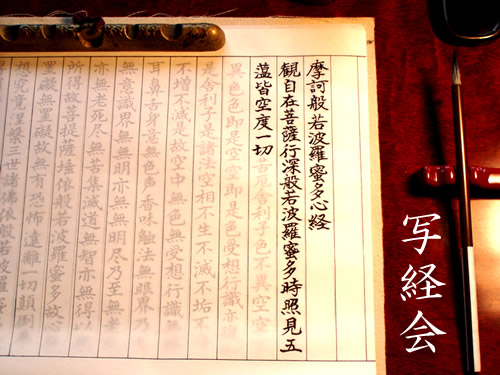 摩訶般若波羅蜜多心経
観自在菩薩行深般若波羅蜜多時照見五
薀皆空度一切苦厄舎利子色不異空空
異色色即是空空即是色受想行識亦
是舎利子是諸法空相不生不滅不垢不
不増不減是故空中無色無受想行識
耳鼻舌身意無色声香味触法無眼界乃
無意識界無無明亦無無明尽乃至無老
亦無老死尽無苦集滅道無智亦無得以
所得故菩提薩埵依般若波羅蜜多故心
罣礙無罣礙故無 一切顛倒
想究竟涅槃三世諸仏依般若波羅蜜
写経会